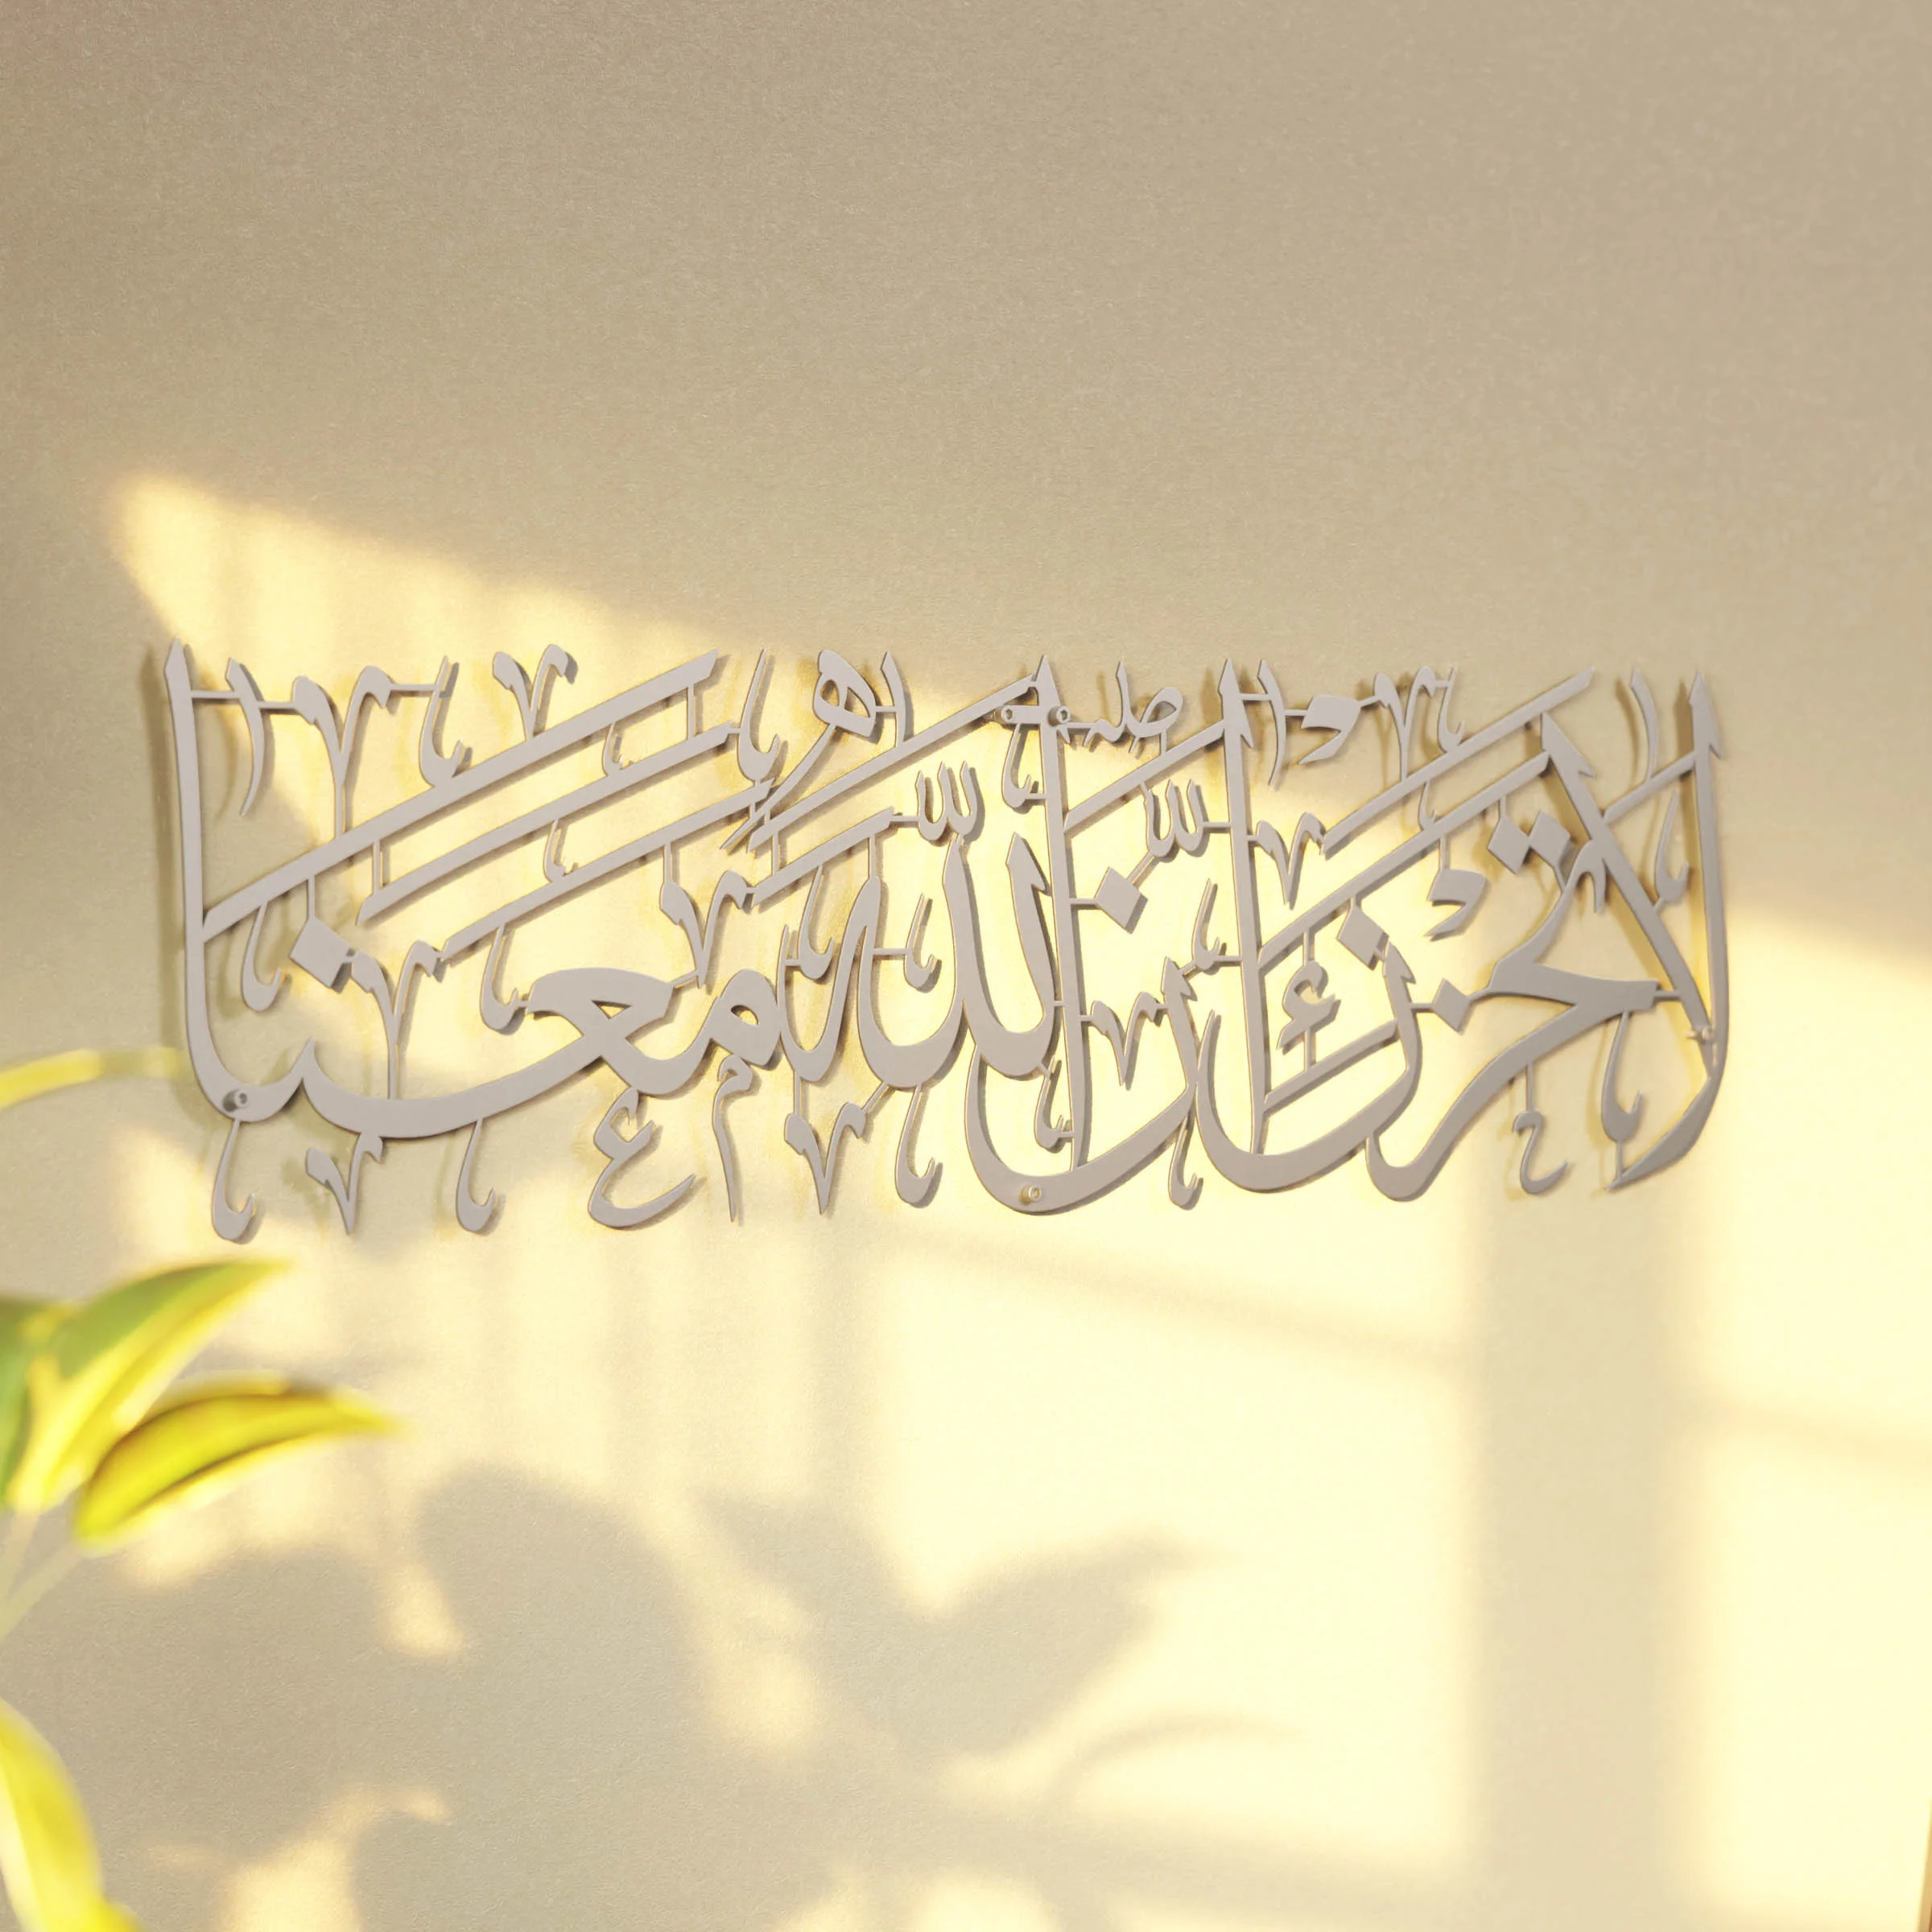 لا تحزن إن الله معنا